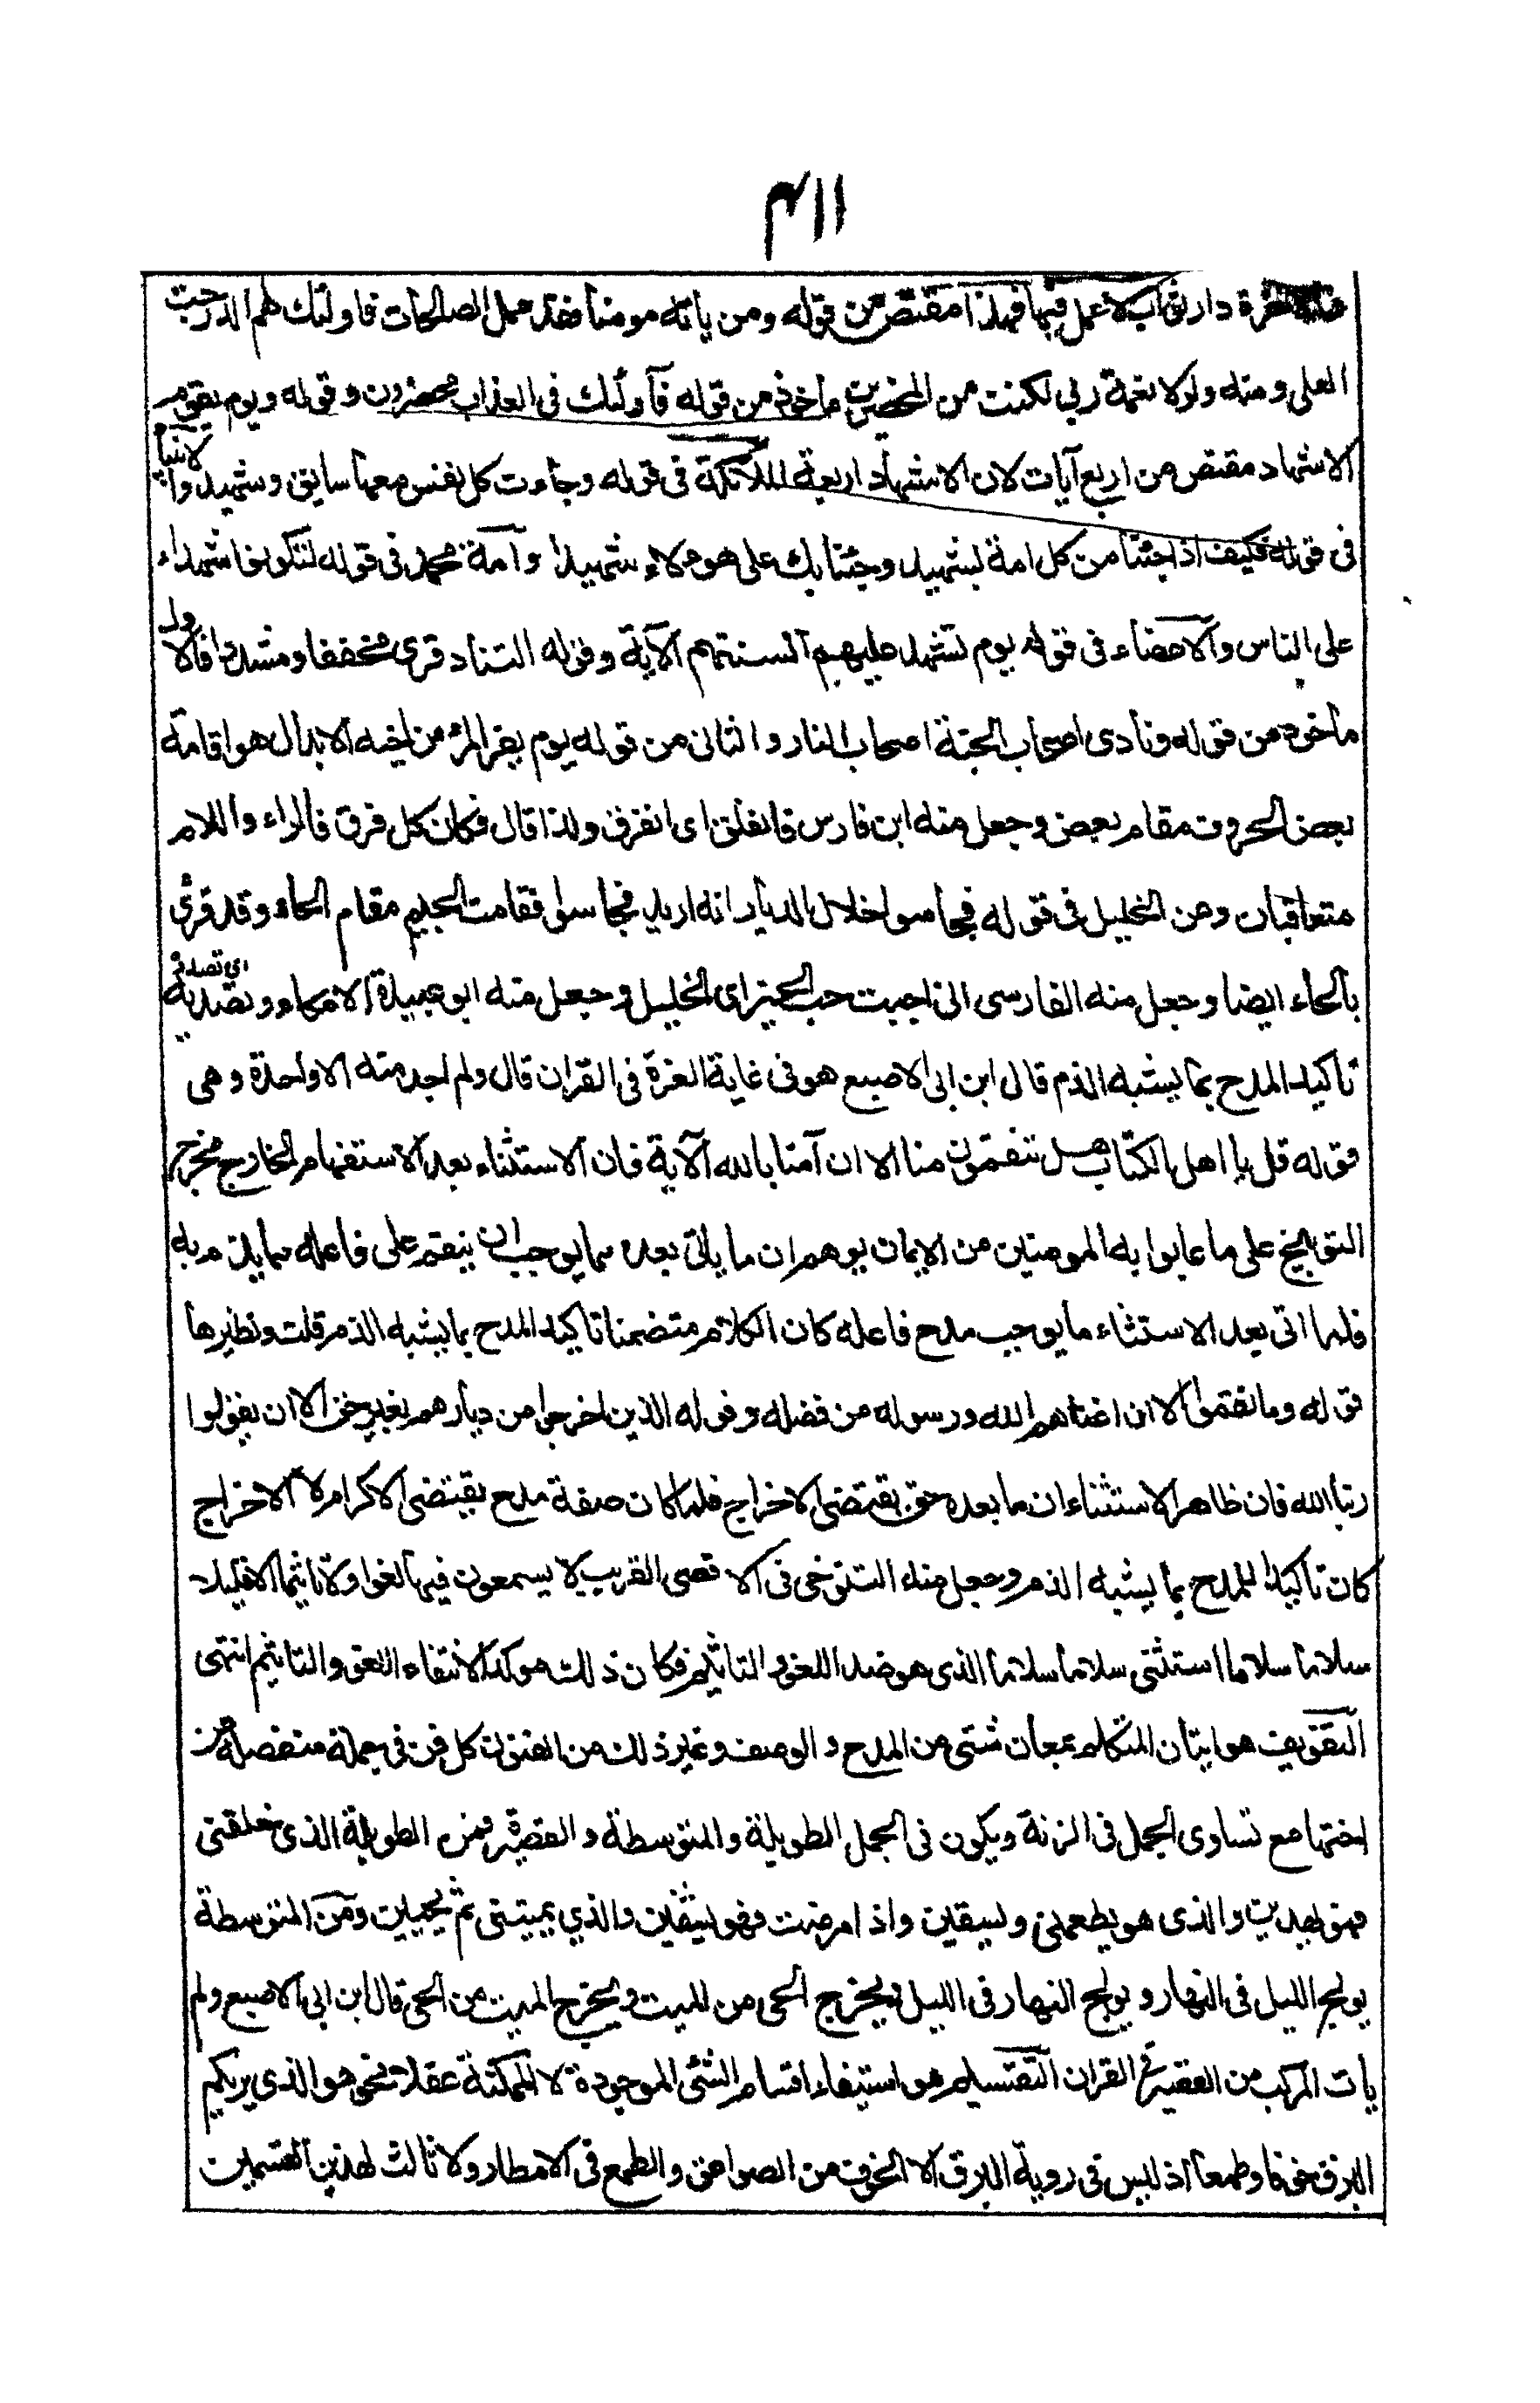 ٤١١
الآخرة دار ثواب لا عمل فيها فهذا مقتص من قوله ومن يأته مومنا فقد عمل الصالحات فاولئك لهم الدرجت
العلى ومنه ولولا نعمة ربي لكنت من المحضرين مأخوذ من قوله فأولئك فى العذاب محضرون وقوله ويوم يقوم
الاشهاد مقتص من اربع آيات لان الاشهاد اربعة الملائكة فى قوله وجاءت كل نفس معها سايق وشهيد والانبيا
فى قوله فكيف اذا جئنا من كل امة بشهيد وجئنا بك على هوءلاء شهيدا وامة محمد فى قوله لتكونوا شهداء
على الناس والاعضاء فى قوله يوم تشهد عليهم السنتهم الآية وقوله التناد قرى مخففا ومشددا فالاول
مأخوذ من قوله ونادى اصحاب الجنة اصحاب النار والثانى من قوله يوم يفر المرء من اخيه الابدال هو اقامة
بعض الحروف مقام بعض وجعل منه ابن فارس فانفلق اى انفرق ولذا قال فكان كل فرق فالراء واللام
متعاقبان وعن الخليل فى قوله فجاسوا خلال الديار انه اريد فجاسوا فقامت الجيم مقام الحاء وقد قرئ
بالحاء ايضا وجعل منه الفارسى انى احببت حب الخير اى الخليل وجعل منه ابو عبيدة الا مكاء وتصدية اى تصددة
تاكيد المدح بما يشبه الذم قال ابن ابى الاصبع هو فى غاية العزة فى القران قال ولم اجد منه الا واحدة وهى
قوله قل يا اهل الكتاب هل تنقمون منا الا ان آمنا بالله الآية فان الاستثناء بعد الاستفهام الخارج مخرج
التوبيخ على ما عابوا به المومنين من الايمان يوهم ان ما ياتى بعده مما يوجب ان ينقم على فاعله مما يذم به
فلما اتى بعد الاستثناء ما يوجب مدح فاعله كان الكلام متضمنا تاكيد المدح بما يشبه الذم قلت ونظيرها
قوله وما نقموا الا ان اغناهم الله ورسوله من فضله وقوله الذين اخرجوا من ديارهم بغير حق الا ان يقولوا
ربنا الله فان ظاهر الاستثناء ان ما بعده حق يقتضى الاخراج فلما كان صفة مدح يقتضى الاكرام لا الاخراج
كان تاكيدا للمدح بما يشبه الذم وجعل منه التنوخى فى الاقصى القريب لا يسمعون فيها لغوا ولا تاثيما الا قيلا
سلاما سلاما استثنى سلاما سلاما الذى هو ضد اللغو والتاثيم فكان ذلك موكدا لانتفاء اللغو والتاثيم انتهى
التفويف هو اتيان المتكلم بمعان شتى من المدح والوصف وغير ذلك من الفنون كل فن فى جملة منفصلة عن
اختها مع تساوى الجمل فى الزنة ويكون فى الجمل الطويلة والمتوسطة والقصيرة فمن الطويلة الذى خلقنى
فهو يهدين والذى هو يطعمنى ويسقين واذا مرضت فهو يشفين والذي يميتنى ثم يحيين ومن المتوسطة
يولج الليل فى النهار و يولج النهار فى الليل ويخرج الحى من الميت ويخرج الميت من الحى قال ابن ابى الاصبع ولم
يات المركب من القصيرة فى القران التقسيم هو استيفاء اقسام الشئ الموجودة لا الممكنة عقلا نحو هو الذى يريكم
البرق خوفا وطمعا اذ ليس فى روية البرق الا الخوف من الصواعق والطمع فى الامطار ولا ثالث لهذين القسمين